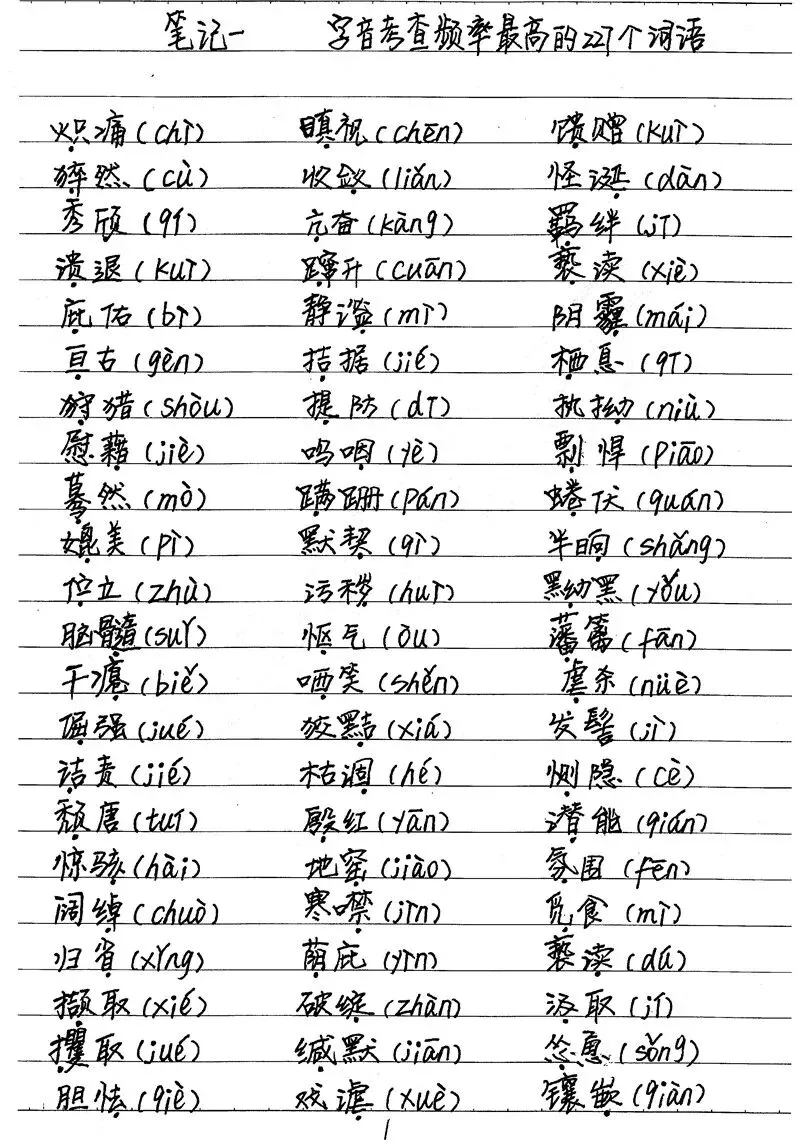 笔记一 字音考查频率最高的227个词语
炽痛(chì) 瞋视(chēn) 馈赠(kuì)
猝然(cù) 收敛(liǎn) 怪诞(dàn)
秀颀(qí) 亢奋(kàng) 羁绊(jī)
溃退(kuì) 蹿升(cuān) 亵渎(xiè)
庇佑(bì) 静谧(mì) 阴霾(mái)
亘古(gèn) 拮据(jié) 栖息(qī)
狩猎(shòu) 提防(dī) 执拗(niù)
慰藉(jiè) 呜咽(yè) 剽悍(piāo)
蓦然(mò) 蹒跚(pán) 蜷伏(quán)
媲美(pì) 默契(qì) 半晌(shǎng)
伫立(zhù) 污秽(huì) 黝黑(yǒu)
脑髓(suǐ) 怄气(òu) 藩篱(fān)
干瘪(biě) 哂笑(shěn) 虐杀(nüè)
倔强(jué) 狡黠(xiá) 发髻(jì)
诘责(jié) 枯涸(hé) 恻隐(cè)
颓唐(tuí) 殷红(yān) 潜能(qián)
惊骇(hài) 地窖(jiào) 氛围(fēn)
阔绰(chuò) 寒噤(jìn) 觅食(mì)
归省(xǐng) 荫庇(yìn) 亵渎(dú)
撷取(xié) 破绽(zhàn) 汲取(jí)
攫取(jué) 缄默(jiān) 怂恿(sǒng)
胆怯(qiè) 戏谑(xuè) 镶嵌(qiàn)
1